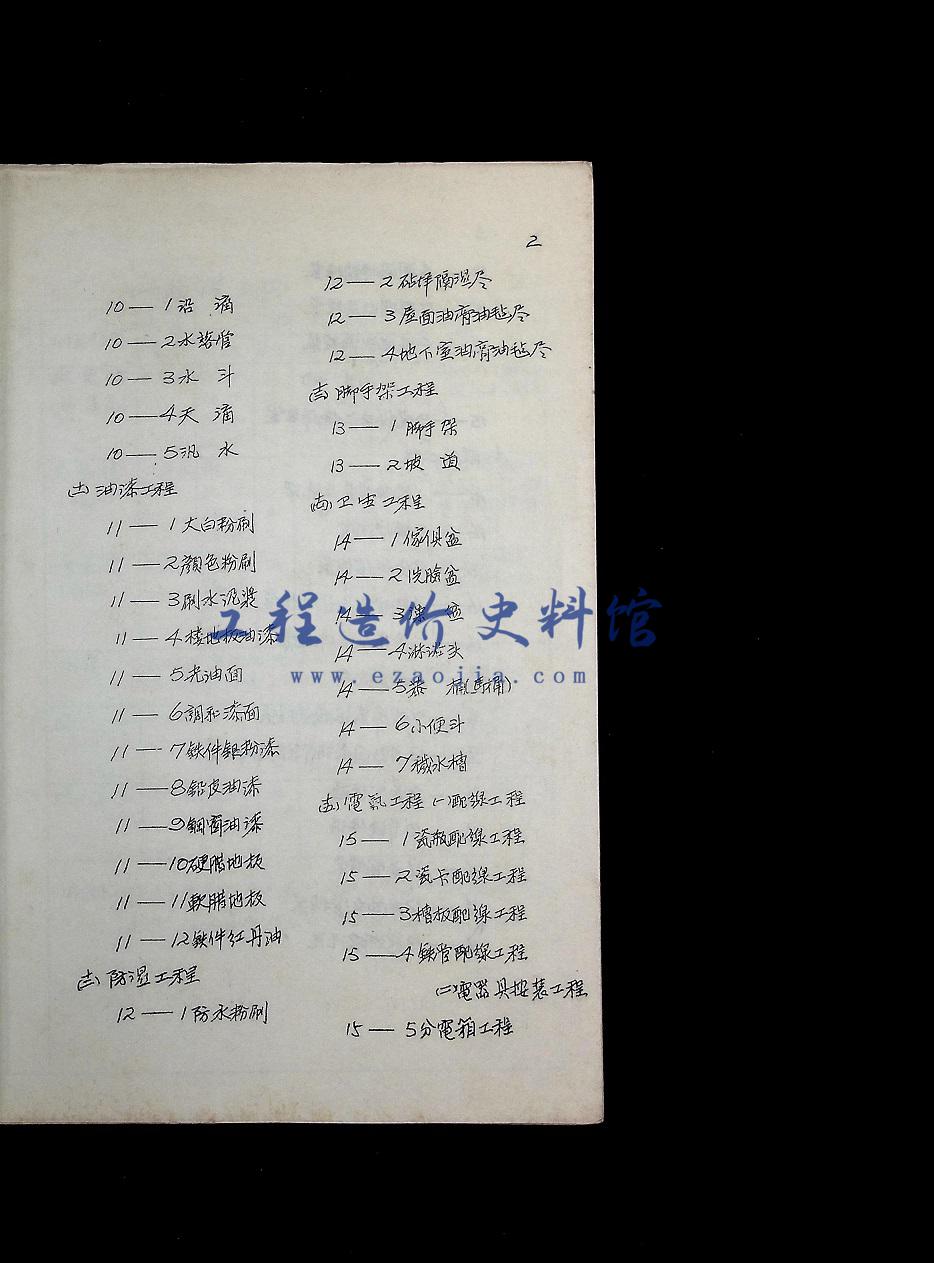 2
10—1沿 滴
10—2水落管
10—3水 斗
10—4天 滴
10—5汎 水
(十一)油漆工程
11—1大白粉刷
11—2顏色粉刷
11—3刷水泥漿
11—4楼地板油漆
11—5光油面
11—6調和漆面
11—7铁件銀粉漆
11—8鉛皮油漆
11—9鋼窗油漆
11—10硬腊地板
11—11軟腊地板
11—12鉄件红丹油
(十二)防湿工程
12—1防水粉刷
12—2砧坪隔湿尽
12—3屋面油膏油毡尽
12—4地下室油膏油毡尽
(十三)脚手架工程
13—1脚手架
13—2坡 道
(十四)卫生工程
14—1傢俱盆
14—2洗臉盆
14—3 盆
14—4淋浴头
14—5恭 桶(馬桶)
14—6小便斗
14—7水槽
(十五)電氣工程(一)配線工程
15—1瓷瓶配線工程
15—2瓷卡配線工程
15—3槽板配線工程
15—4鉄管配線工程
(二)電器具按装工程
15—5分電箱工程
工程造价史料馆
www.ezaojia.com